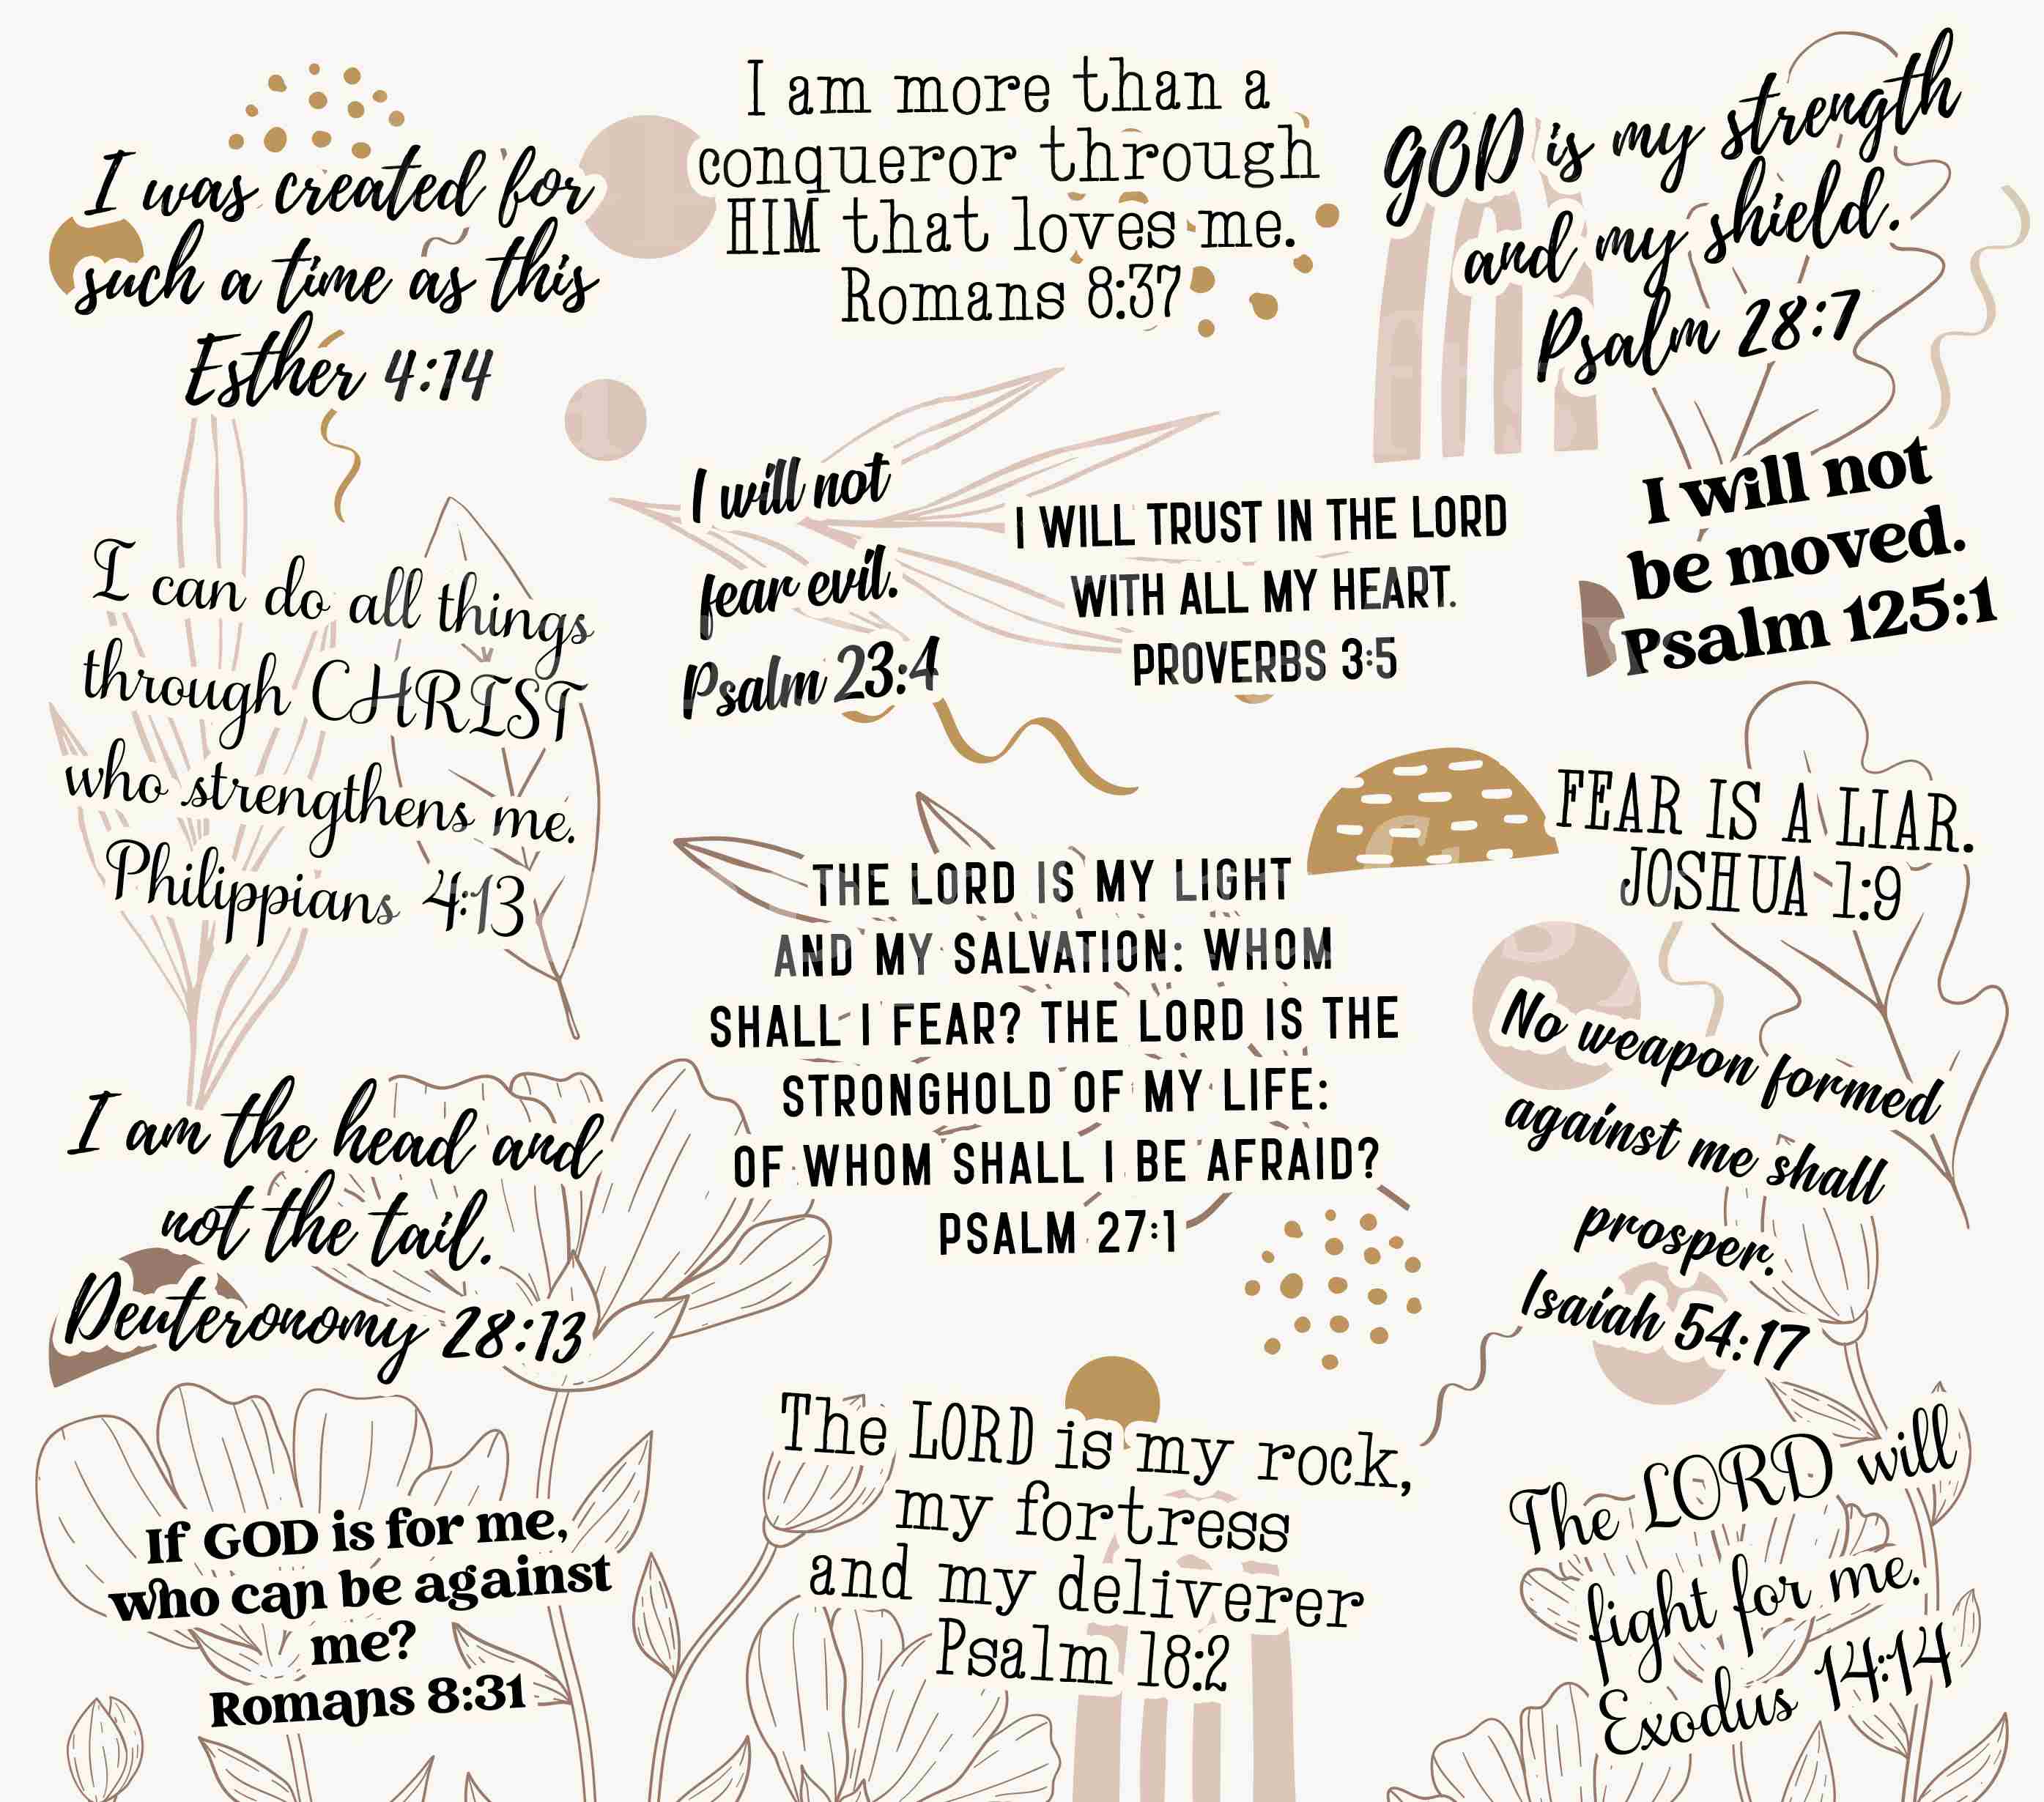 I was created for
such a time as this
Esther 4:14
I am more than a
conqueror through
HIM that loves me.
Romans 8:37
GOD is my strength
and my shield.
Psalm 28:7
I will not
fear evil.
Psalm 23:4
I WILL TRUST IN THE LORD
WITH ALL MY HEART.
PROVERBS 3:5
I will not
be moved.
Psalm 125:1
I can do all things
through CHRIST
who strengthens me.
Philippians 4:13
THE LORD IS MY LIGHT
AND MY SALVATION: WHOM
SHALL I FEAR? THE LORD IS THE
STRONGHOLD OF MY LIFE:
OF WHOM SHALL I BE AFRAID?
PSALM 27:1
FEAR IS A LIAR.
JOSHUA 1:9
No weapon formed
against me shall
prosper.
Isaiah 54:17
I am the head and
not the tail.
Deuteronomy 28:13
If GOD is for me,
who can be against
me?
Romans 8:31
The LORD is my rock,
my fortress
and my deliverer
Psalm 18:2
The LORD will
fight for me.
Exodus 14:14